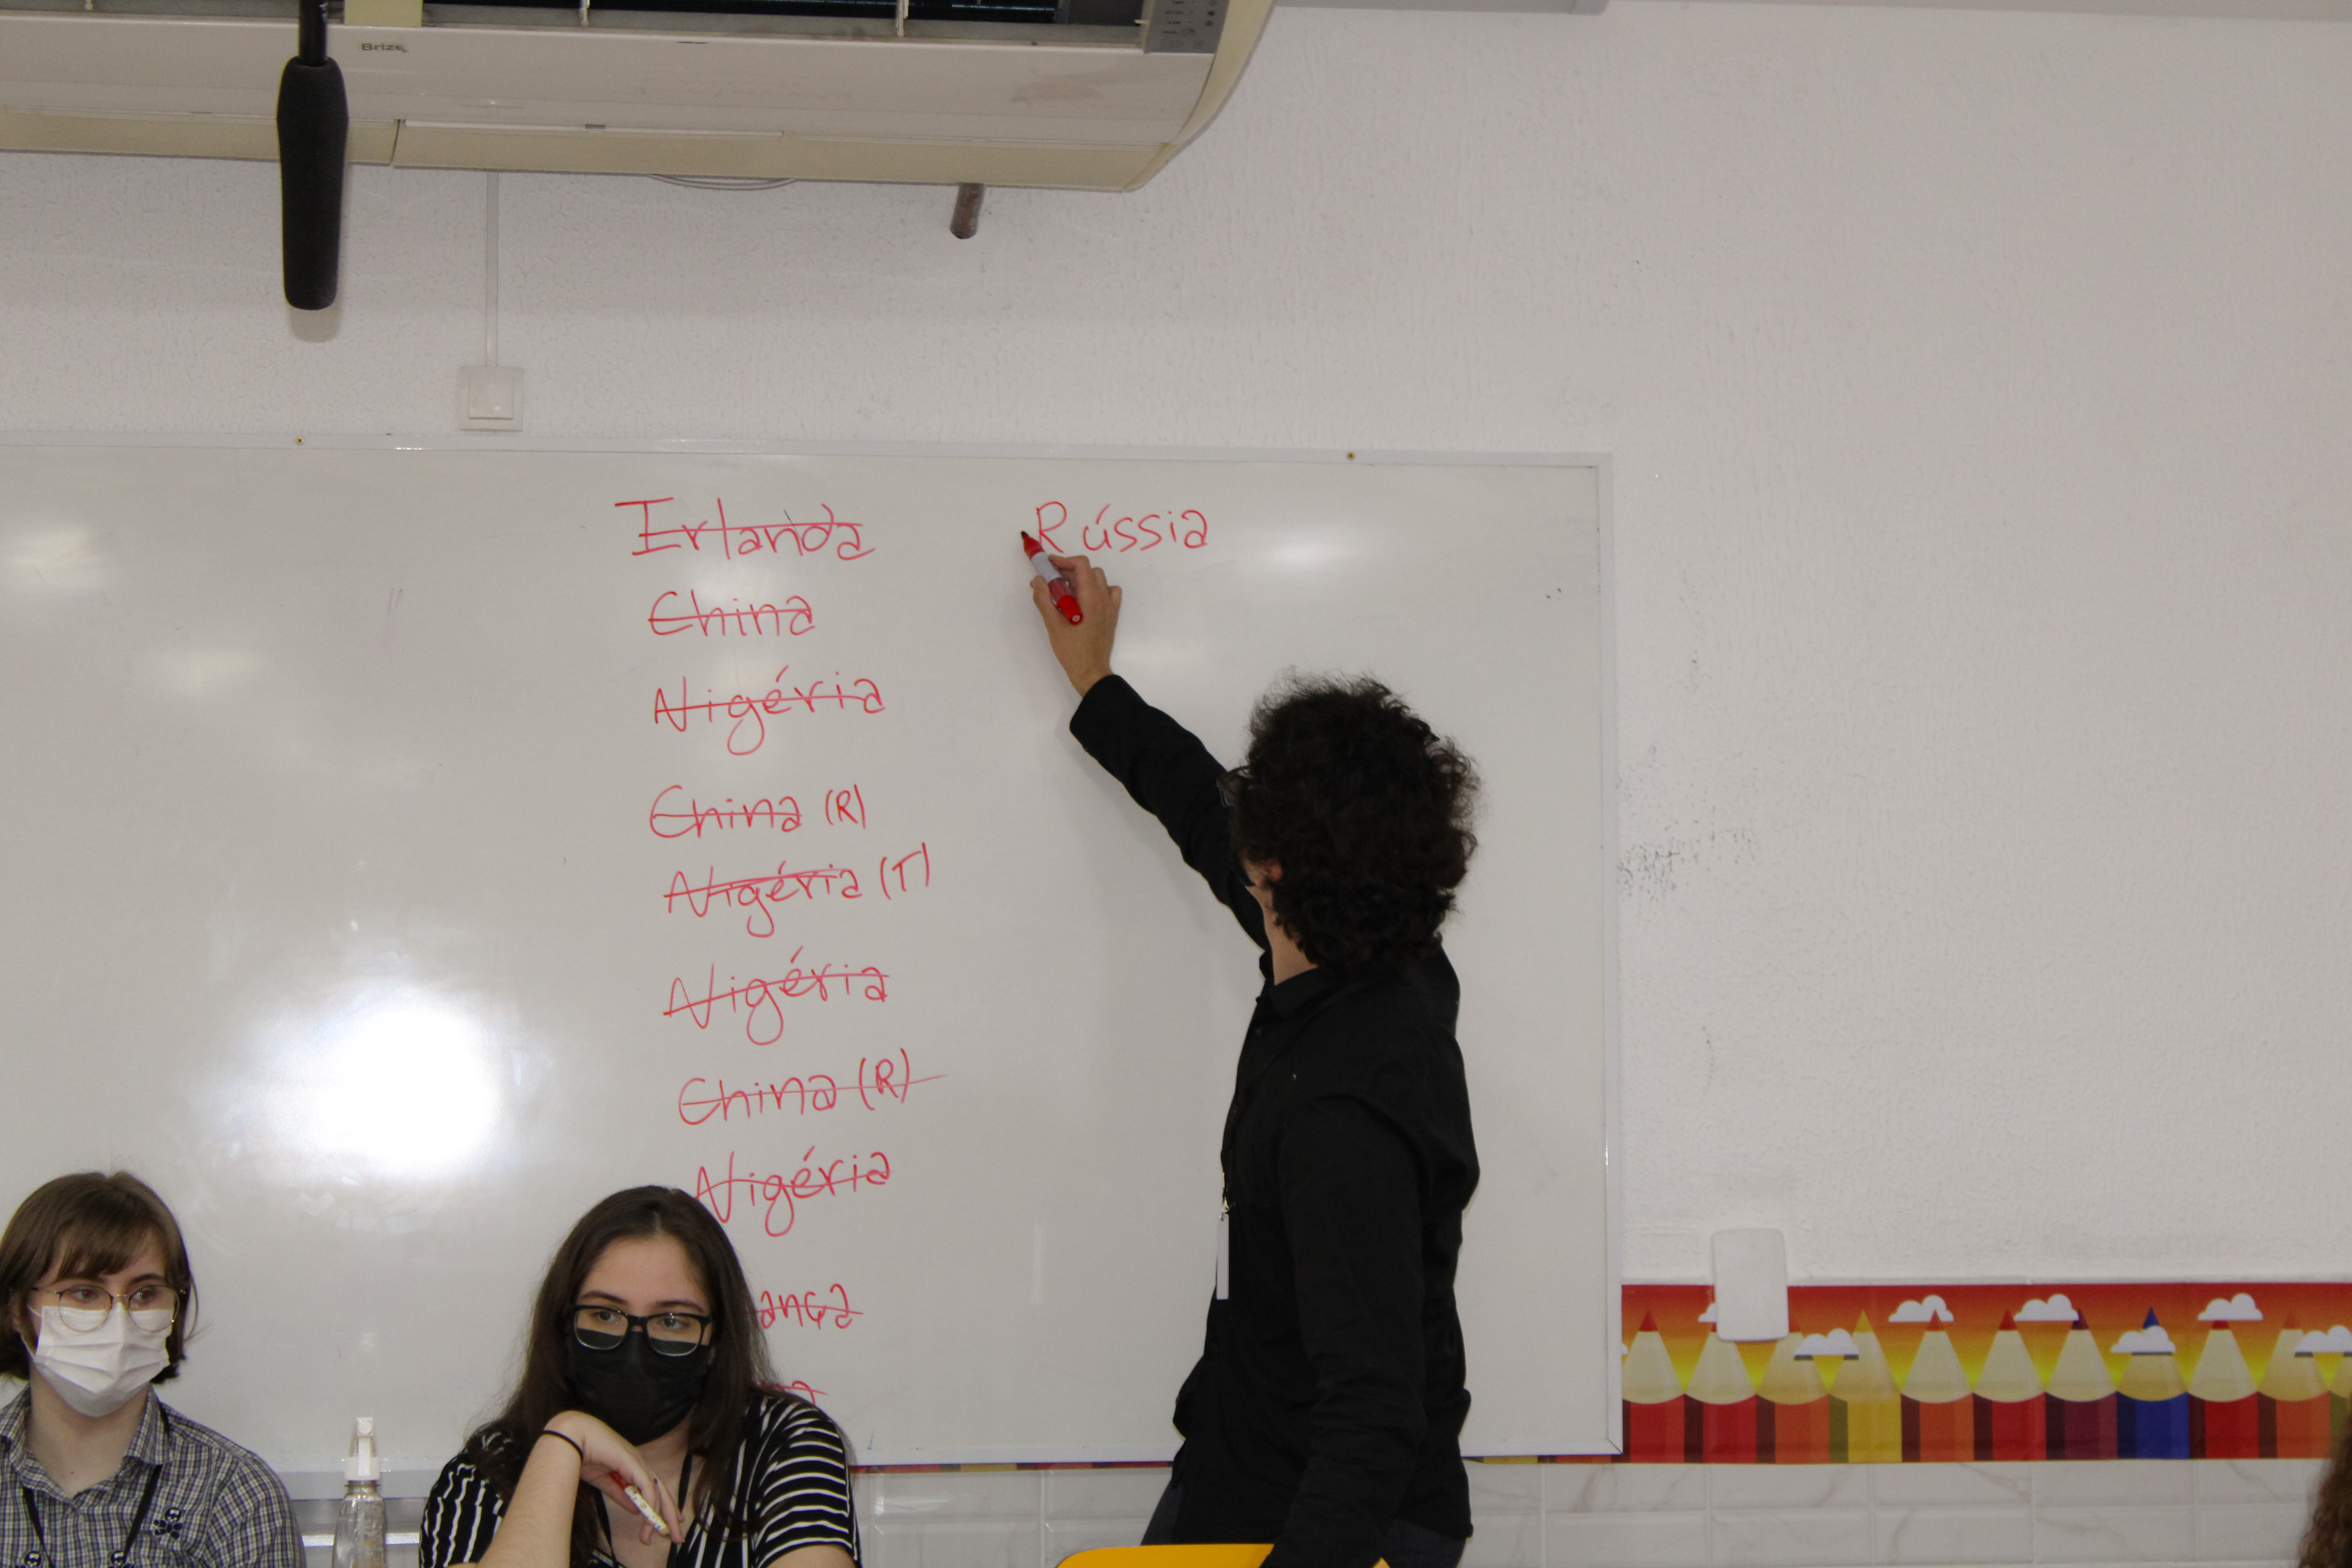 Brize
Irlanda
Rússia
China
Nigéria
China (R)
Nigéria (T)
Nigéria
China (R)
Nigéria
ança